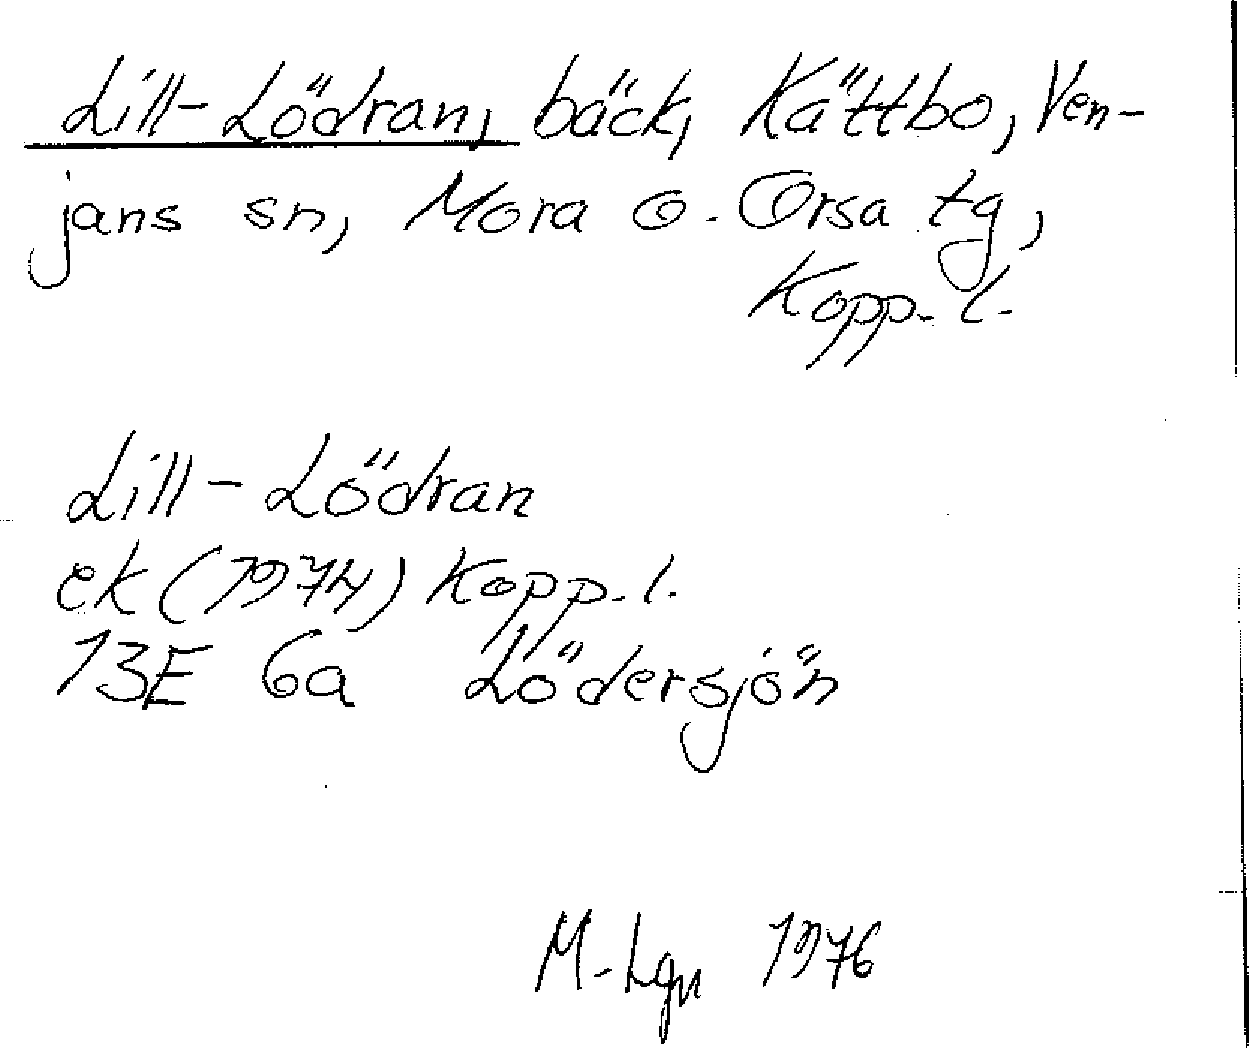 Lill-Lödran, bäck, Kättbo, Ven-
jans sn, Mora o. Orsa tg,
Kopp. l.
Lill-Lödran
ek (1974) Kopp. l.
13E 6a Lödersjön
M-Lgn 1976